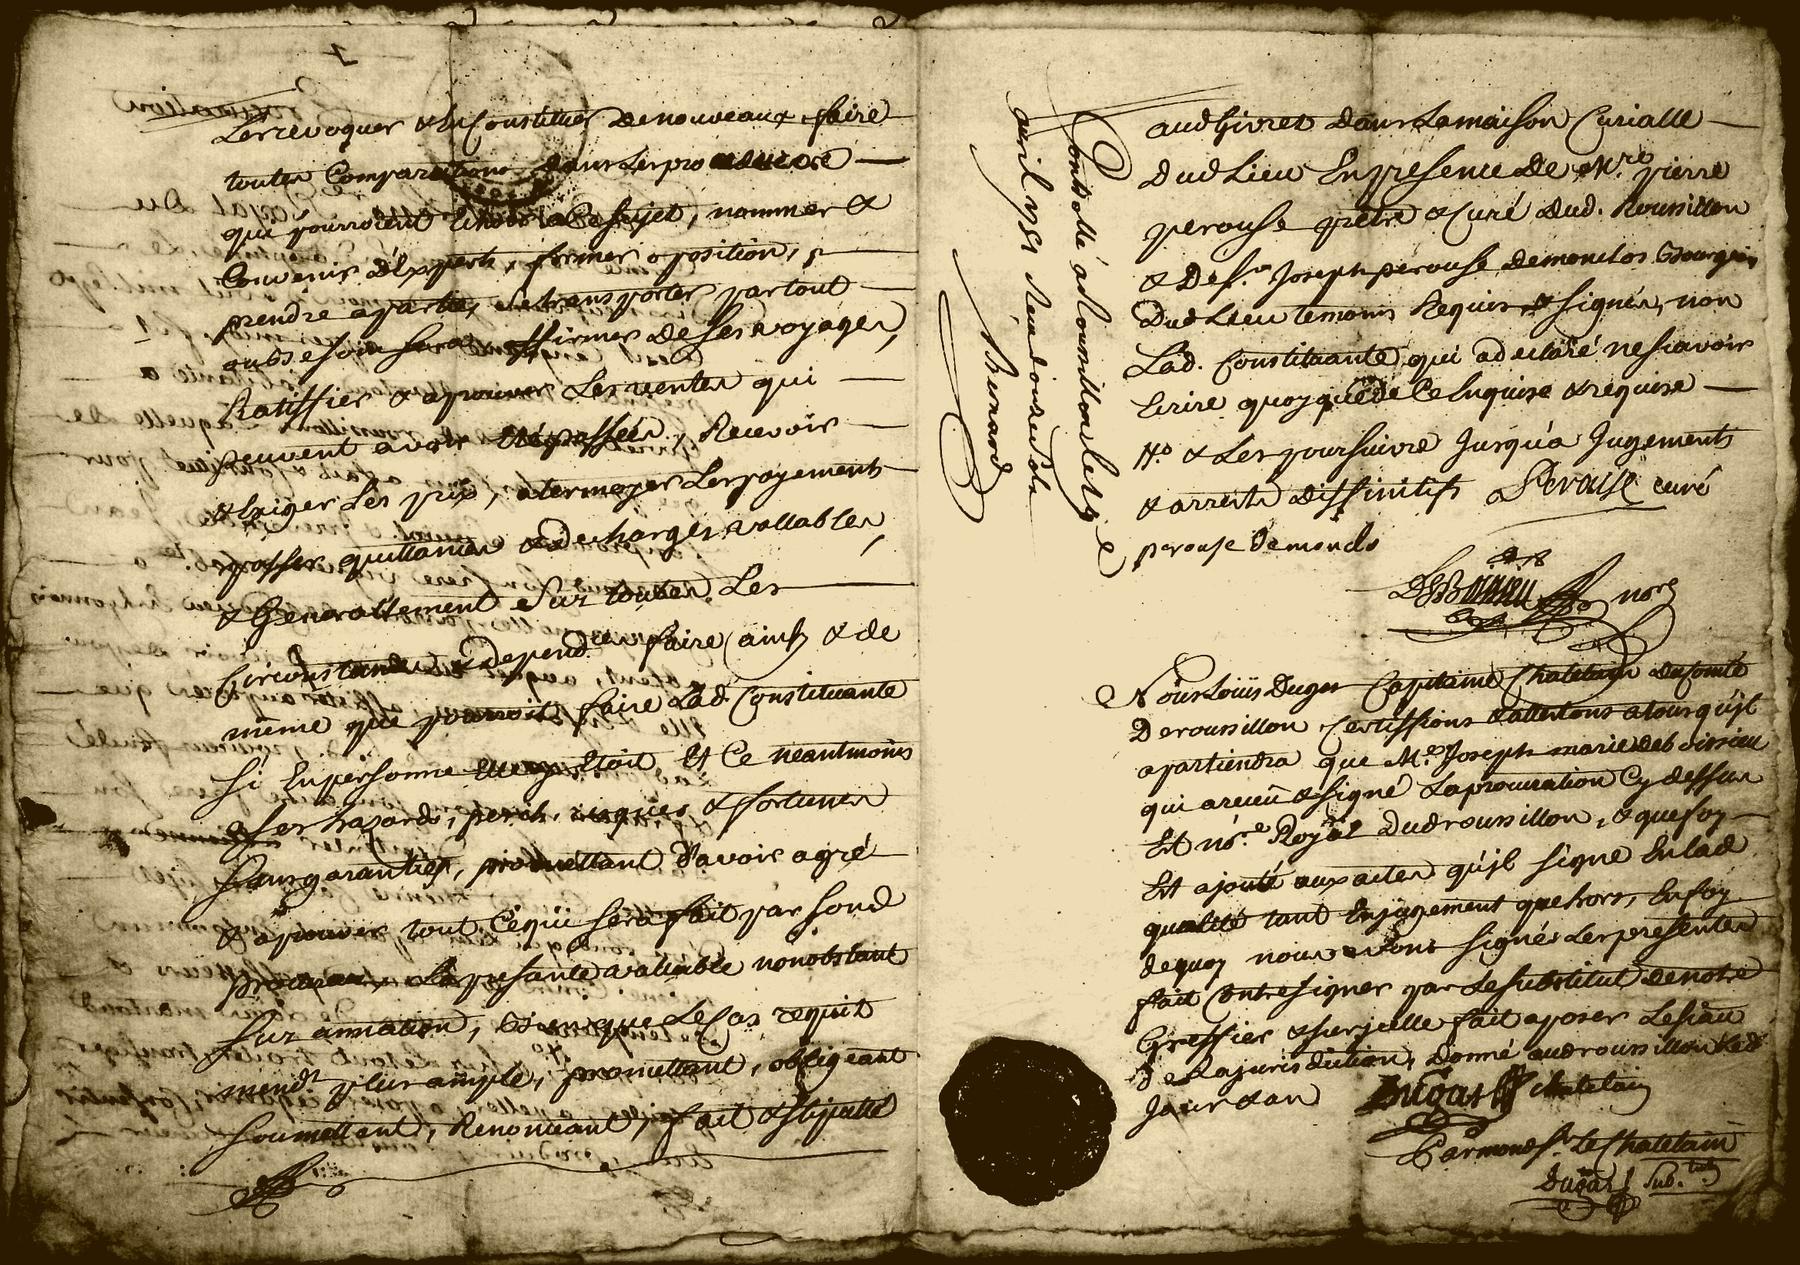 Les revoquer & En Constituer De nouveaux faire
toutes Comparutions Dans Les procedures
qui pourroient Ce sujet, nommer &
Convenir d'Experts, former oposition,
prendre a partie, se transporter partout
ou besoin sera affirmer De ses voyages,
Ratiffier & aprouver Les ventes qui
peuvent avoir Eté passées, Recevoir
& Exiger Les prix, atermoyer Les payements
passer quittances & decharges vallables,
& Generallement Sur toutes Les
Circonstances & Depend.ces faire ainsy & de
même que pourroit faire Lad. Constituante
Si En personne Elle y Etoit, Et Ce neantmoins
a ses hazards, perils, risques & fortunes
Sans garanties, promettant d'avoir agré
& aprouver tout Ce qui sera fait par Sond
procureur, La presante valiable nonobstant
Sur annation, & bien que Le Cas requit
mendt plus ample, promettant, obligeant
Soumettant, Renonceant, fait & stipullé
aud Givret Dans La maison Curialle
Dud Lieu En presence De Mre pierre
perouse prêtre & Curé Dud. Roussillon
& De Sr Joseph perouse Demonclos Bourgeois
Dud Lieu temoins Requis & signés, non
Lad. Constituante qui a declaré ne scavoir
Ecrire quoyque de Ce Enquise & requise
& Les poursuivre Jusqu'a Jugements
& arrests Diffinitifs Perouse curé
perouse Demonclo
Deboissieu nore
Controllé a Roussillon Le
avril 1751 Receu douze sols
Besnard
Nous Loüis Dugas Capitaine Chatelain Du Comté
De roussillon Certiffions & attestons a tous qu'jl
apartiendra que Me Joseph marie deboissieu
qui a receu & signé La procuration Cy dessus
Est nore Royal Dud roussillon, & que foy
Est ajouté aux actes qu'jl signe En lad
qualité tant En jugement que hors, En foy
dequoy nous avons signés Les presentes
fait Contresigner par Le substitut de notre
Greffier & sur jcelle fait aposer Le sceau
de La jurisdiction, Donné aud roussillon Led
Jour & an Dugas chatelain
Par mond Sr Le Chatelain
Dugas Sub.tut